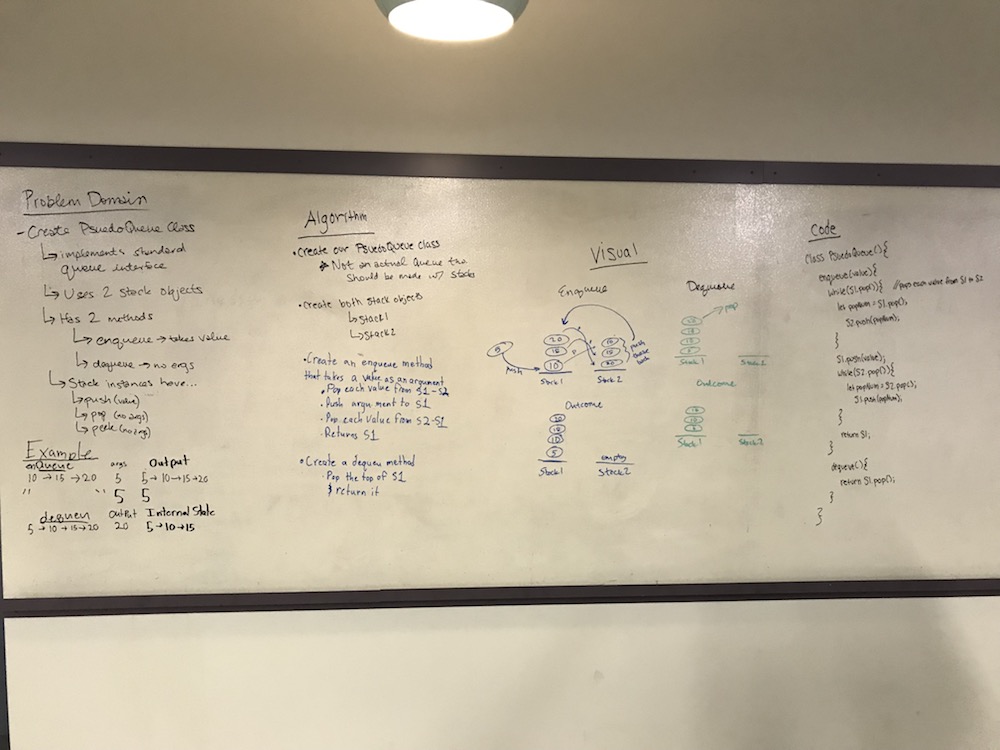 Problem Domain
- Create PsuedoQueue Class
↳ implements standard
queue interface
↳ Uses 2 Stack objects
↳ Has 2 methods
↳ enqueue → takes value
↳ dequeue → no args
↳ Stack instances have...
↳ push (value)
↳ pop (no args)
↳ peek (no arg)
Example
enQueue args Output
10 → 15 → 20 5 5 → 10 → 15 → 20
" " 5 5
dequeu Output Internal State
5 → 10 → 15 → 20 20 5 → 10 → 15
Algorithm
• Create our PsuedoQueue class
Not an actual Queue
Should be made w/ Stacks
• Create both Stack objects
↳ Stack1
↳ Stack2
• Create an enqueue method
that takes a value as an argument
• Pop each value from S1-S2
• Push argument to S1
• Pop each value from S2-S1
• Returns S1
• Create a dequeu method
• Pop the top of S1
& return it
Visual
Enqueue
5
push
20
15
10
Stack1
10
15
20
Stack2
push
back
Outcome
20
15
10
5
Stack1
empty
Stack2
Dequeue
pop
Stack1
Stack2
Outcome
Stack1
Stack2
Code
Class PsuedoQueue(){
enqueue(value){
while(S1.pop()){ //pops each value from S1 to S2
let popNum = S1.pop();
S2.push(popNum);
}
S1.push(value);
while(S2.pop()){
let popNum = S2.pop();
S1.push(popNum);
}
return S1;
}
dequeue(){
return S1.pop();
}
}